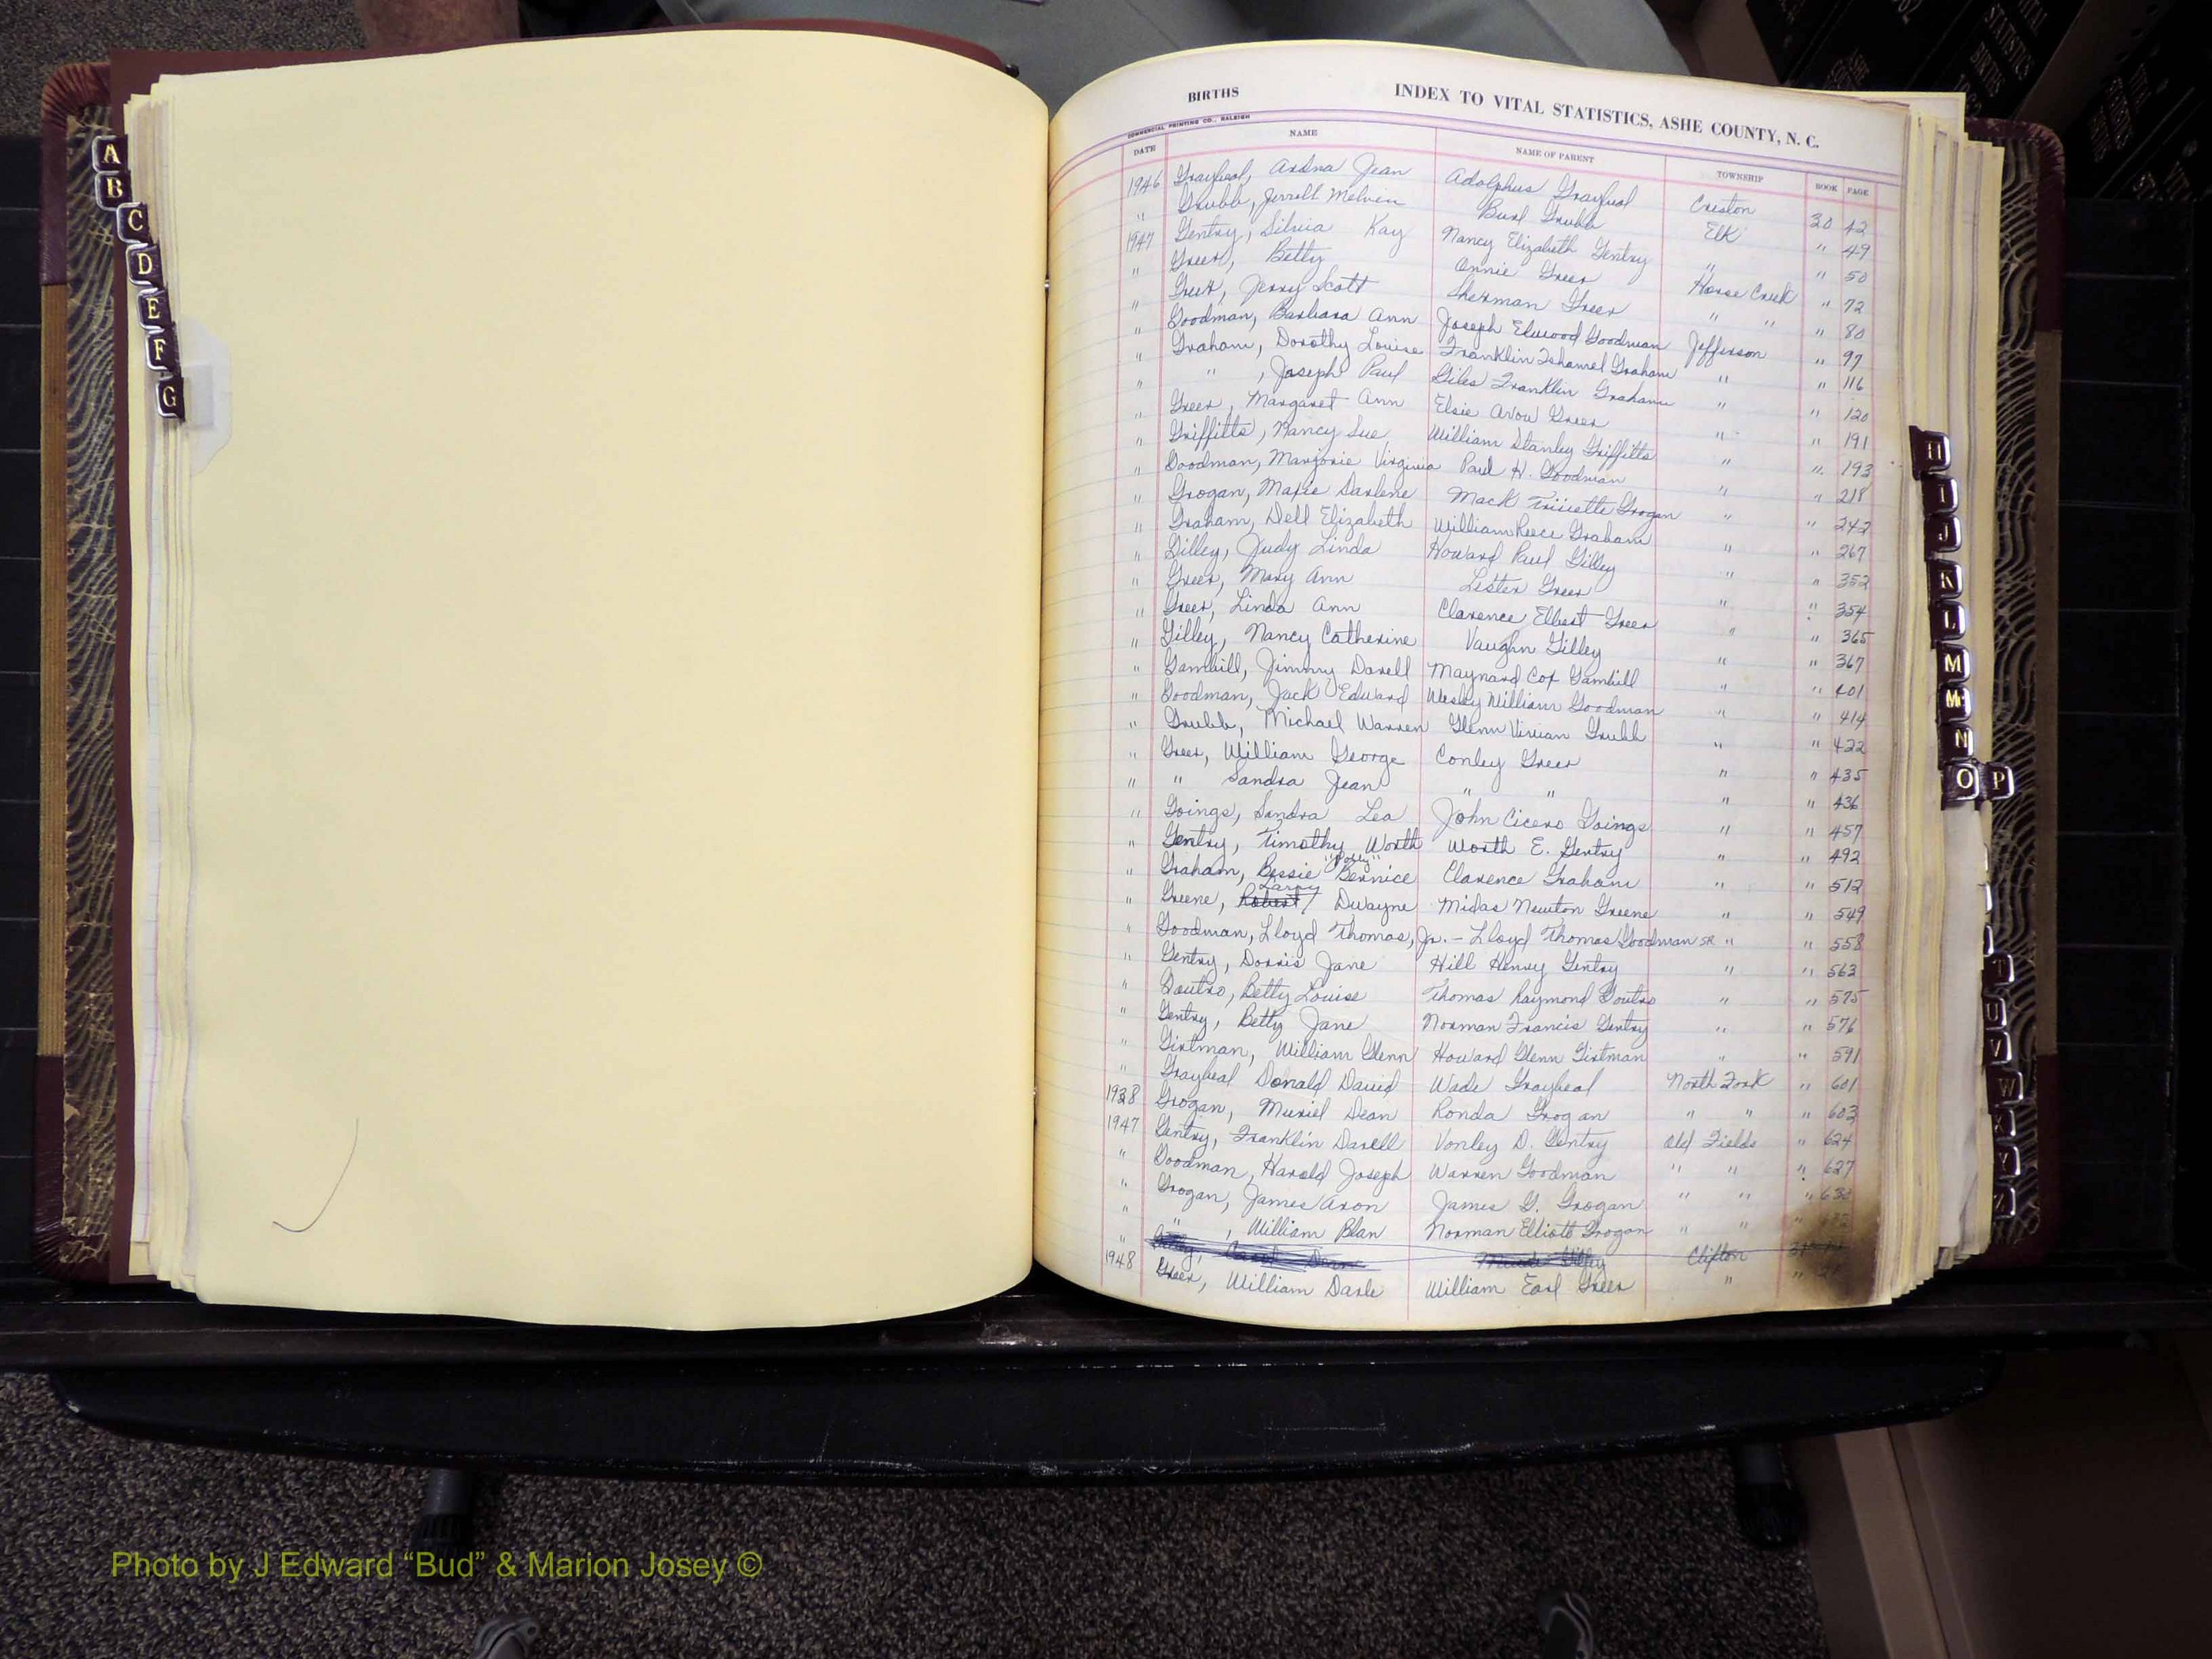 A
B
C
D
E
F
G
BIRTHS INDEX TO VITAL STATISTICS, ASHE COUNTY, N. C.
COMMERCIAL PRINTING CO., RALEIGH
DATE NAME NAME OF PARENT TOWNSHIP BOOK PAGE
1946 Graybeal, Ardna Jean Adolphus Graybeal Creston 30 42
" Grubb, Jerrell Melvin Burl Grubb Elk " 49
1947 Gentry, Silvia Kay Nancy Elizabeth Gentry " " 50
" Greer, Betty Annie Greer Horse Creek " 72
" Greer, Jerry Scott Sherman Greer " " " 80
" Goodman, Barbara Ann Joseph Elwood Goodman Jefferson " 97
" Graham, Dorothy Louise Franklin Ishamel Graham " " 116
" " , Joseph Paul Giles Franklin Graham " " 120
" Greer, Margaret Ann Elsie Avow Greer " " 191
" Griffitts, Nancy Sue William Stanley Griffitts " " 193
" Goodman, Marjorie Virginia Paul H. Goodman " " 218
" Grogan, Marie Darlene Mack Grogan " " 242
" Graham, Dell Elizabeth William Reece Graham " " 267
" Gilley, Judy Linda Howard Paul Gilley " " 352
" Greer, Mary Ann Lester Greer " " 354
" Greer, Linda Ann Clarence Elbert Greer " " 365
" Gilley, Nancy Catherine Vaughn Gilley " " 367
" Gambill, Jimmy Darell Maynard Cox Gambill " " 401
" Goodman, Jack Edward Wesley William Goodman " " 414
" Grubb, Michael Warren Glenn Vivian Grubb " " 422
" Greer, William George Conley Greer " " 435
" " Sandra Jean " " " " 436
" Goings, Sandra Lea John Cicero Goings " " 457
" Gentry, Timothy Worth Worth E. Gentry " " 492
" Graham, Bessie "Polly" Bernice Clarence Graham " " 512
" Greene, Robert Larry Dwayne Midas Newton Greene " " 549
" Goodman, Lloyd Thomas, Jr. - Lloyd Thomas Goodman SR " " 558
" Gentry, Dorris Jane Hill Henry Gentry " " 563
" Goutro, Betty Louise Thomas Raymond Goutro " " 575
" Gentry, Betty Jane Norman Francis Gentry " " 576
" Girtman, William Glenn Howard Glenn Girtman " " 591
" Graybeal Donald David Wade Graybeal North Fork " 601
1938 Grogan, Muriel Dean Ronda Grogan " " " 603
1947 Gentry, Franklin Darell Vonley D. Gentry Old Fields " 624
" Goodman, Harold Joseph Warren Goodman " " " 627
" Grogan, James Aron James G. Grogan " " "
" " , William Blan Norman Elliott Grogan " " "
" Clifton
1948 Greer, William Darle William Earl Greer " "
H
I
J
K
L
M
Mc
N
O P
T
U
V
W
X
Y
Photo by J Edward “Bud” & Marion Josey ©